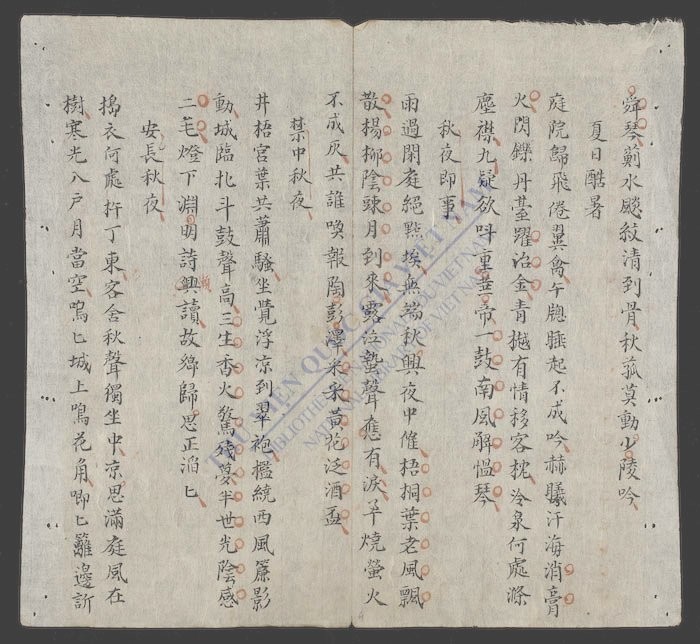 舜琴薊水颷紋清到骨秋菰莫動少陵吟
夏日酷暑
庭院歸飛倦翼禽午牕睡起不成吟赫曦汗海消膏
火閃鑠丹臺躍冶金青樾有情移客枕冷泉何處滌
塵襟九疑欲呌重華帝一鼓南風解慍琴
秋夜即事
雨過閑庭絕點埃無端秋興夜中催梧桐葉老風飄
散楊柳陰疎月到來露泣蛩聲應有淚草燒螢火
不成灰共誰喚報陶彭澤釆釆黃花泛酒盃
禁中秋夜
井梧宮葉共蕭騷坐覺浮凉到翠袍檻繞西風簾影
動城臨北斗鼓聲高三生香火驚殘夢半世光陰感
二毛燈下淵明詩興讀故鄉歸思正滔匕
頻
安長秋夜
搗衣何處杵丁東客舍秋聲獨坐中凉思滿庭風在
樹寒光入戶月當空嗚匕城上鳴花角唧匕籬邊訴
THƯ VIỆN QUỐC GIA VIỆT NAM
BIBLIOTHÈQUE NATIONALE DU VIETNAM
NATIONAL LIBRARY OF VIETNAM